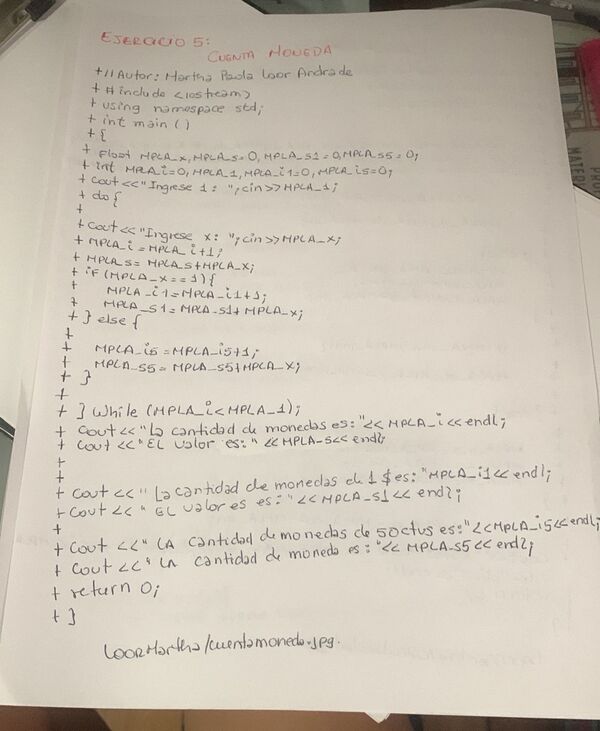 EJERCICIO 5:
CUENTA MONEDA
+ // Autor: Martha Paola Loor Andrade
+ # include <iostream>
+ using namespace std;
+ int main ()
+ {
+ Float MPLA_x, MPLA_s=0, MPLA_s1=0, MPLA_s5=0;
+ int MPLA_i=0, MPLA_1, MPLA_i1=0, MPLA_i5=0;
+ cout<<"Ingrese 1: ";cin>>MPLA_1;
+ do {
+
+ cout<<"Ingrese x: ";cin>>MPLA_x;
+ MPLA_i=MPLA_i+1;
+ MPLA_s=MPLA_s+MPLA_x;
+ if (MPLA_x==1){
+ MPLA_i1=MPLA_i1+1;
+ MPLA_s1=MPLA_s1+MPLA_x;
+ } else {
+
+ MPLA_i5=MPLA_i5+1;
+ MPLA_s5=MPLA_s5+MPLA_x;
+ }
+
+ } while (MPLA_i<MPLA_1);
+ cout<<"La cantidad de monedas es: "<< MPLA_i << endl;
+ cout<<"EL valor es: " << MPLA_s<< endl;
+
+
+ cout << " La cantidad de monedas de 1 $ es: "MPLA_i1<< endl;
+ cout << " EL valor es es: "<< MPLA_s1 << endl;
+
+ cout <<" LA cantidad de monedas de 50ctus es:"<<MPLA_i5<<endl;
+ cout <<" LA cantidad de moneda es: "<< MPLA_s5 << endl;
+ return 0;
+ }
LOORMartha/cuentamoneda.jpg.